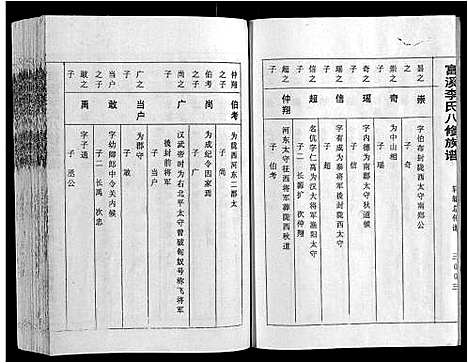 富溪李氏八修族谱
轩辕总传谱
三〇〇三
昙之子
崇
字伯布封陇西太守南郑公
子 奇
崇之子
奇
为中山相
子 瑶
奇之子
瑶
字内德为南郡太守秋道侯
子 信
瑶之子
信
字有成秦将军封陇西太守
子二 长 超 次 仲翔
信之子
超
名伉字仁高为汉大将军渔阳太守
超之子
仲翔
河东太守征西将军葬陇西狄道
子 伯考
仲翔之子
伯考
为陇西河东二郡太
子 尚
伯考之子
尚
为成纪令因家焉
子 广
尚之子
广
汉武帝时为右北平太守曾破匈奴号称飞将军
後封前将军
子 当户
广之子
当户
为郡守
子 敢
敢
字幼卿郎中令关内候
子二 长禹 次忠
敢之子
禹
字子通
子 丞公